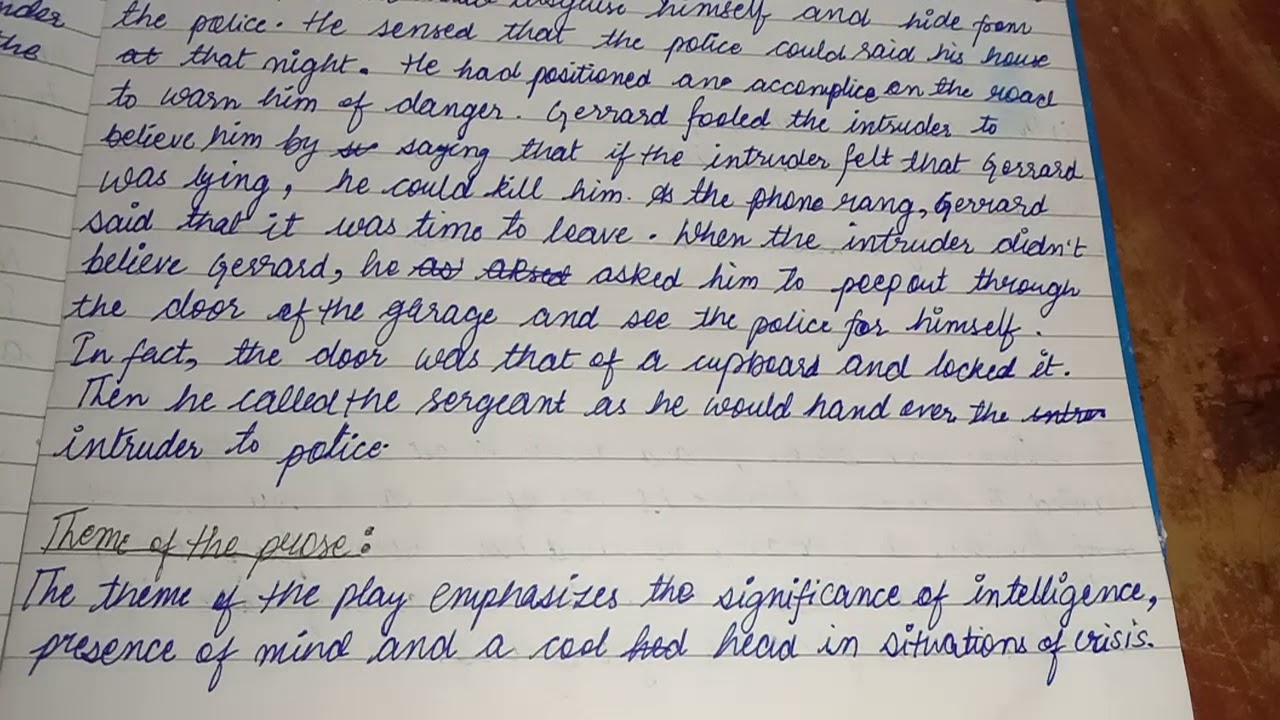 nder
the
disguise himself and hide from
the police. He sensed that the police could said his house
at that night. He had positioned an accomplice on the road
to warn him of danger. Gerrard fooled the intruder to
believe him by saying that if the intruder felt that Gerrard
was lying, he could kill him. As the phone rang, Gerrard
said that it was time to leave. When the intruder didn't
believe Gerrard, he as aksed asked him to peep out through
the door of the garage and see the police for himself.
In fact, the door was that of a cupboard and locked it.
Then he called the sergeant as he would hand over the intru
intruder to police.
Theme of the prose:
The theme of the play emphasizes the significance of intelligence,
presence of mind and a cool head in situations of crisis.